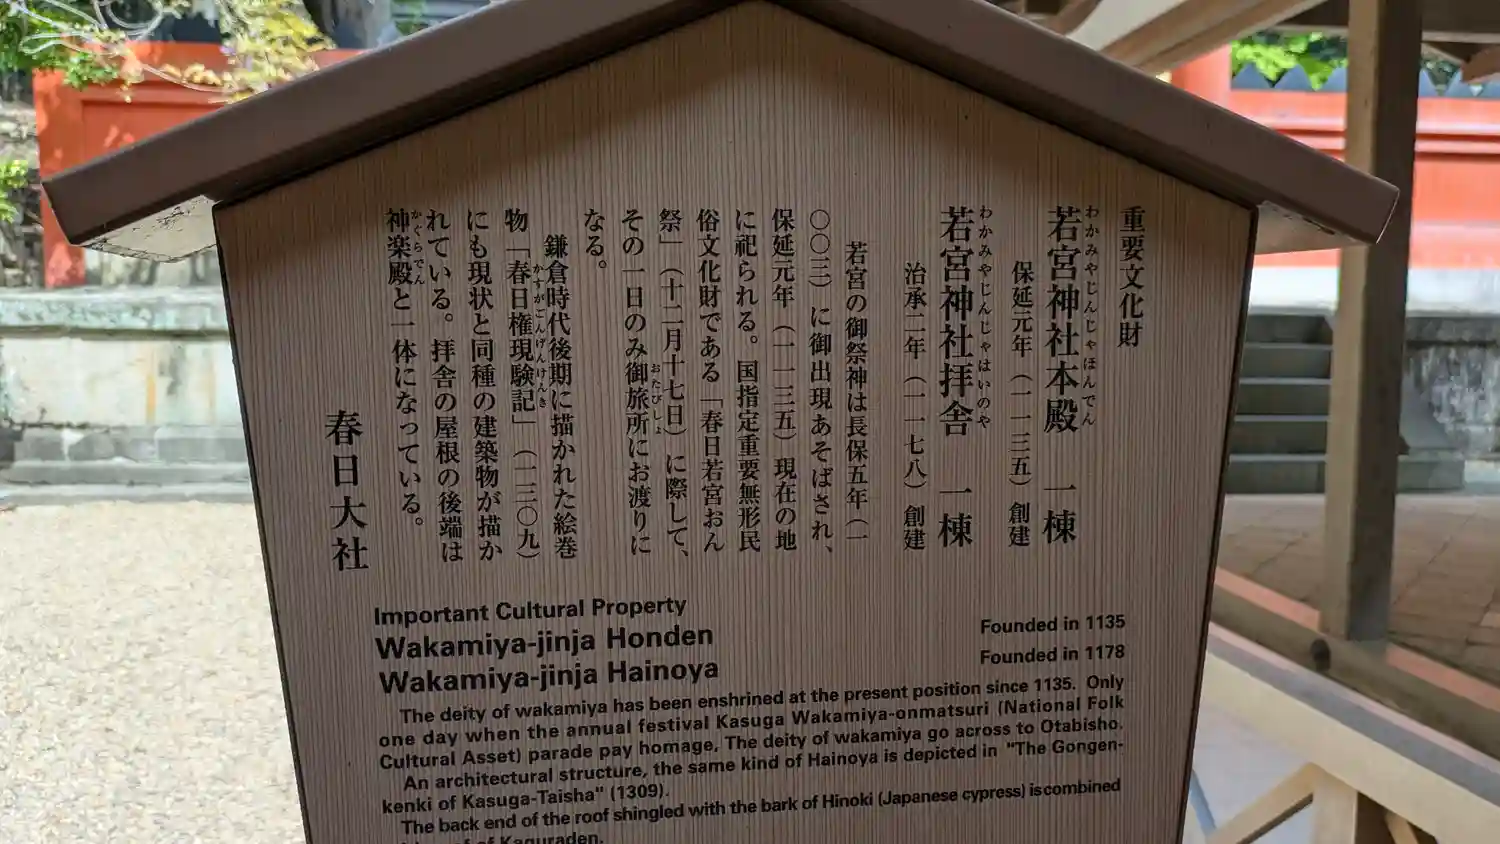 重要文化財
わかみやじんじゃほんでん
若宮神社本殿 一棟
保延元年(一一三五)創建
わかみやじんじゃはいのや
若宮神社拝舎 一棟
治承二年(一一七八)創建
若宮の御祭神は長保五年(一
〇〇三)に御出現あそばされ、
保延元年(一一三五)現在の地
に祀られる。国指定重要無形民
俗文化財である「春日若宮おん
祭」(十二月十七日)に際して、
おたびしょ
その一日のみ御旅所にお渡りに
なる。
鎌倉時代後期に描かれた絵巻
かすがごんげんけんき
物「春日権現験記」(一三〇九)
にも現状と同種の建築物が描か
れている。拝舎の屋根の後端は
かぐらでん
神楽殿と一体になっている。
春日大社
Important Cultural Property
Wakamiya-jinja Honden Founded in 1135
Wakamiya-jinja Hainoya Founded in 1178
The deity of wakamiya has been enshrined at the present position since 1135. Only
one day when the annual festival Kasuga Wakamiya-onmatsuri (National Folk
Cultural Asset) parade pay homage, The deity of wakamiya go across to Otabisho.
An architectural structure, the same kind of Hainoya is depicted in "The Gongen-
kenki of Kasuga-Taisha" (1309).
The back end of the roof shingled with the bark of Hinoki (Japanese cypress) is combined
of Kaguraden.